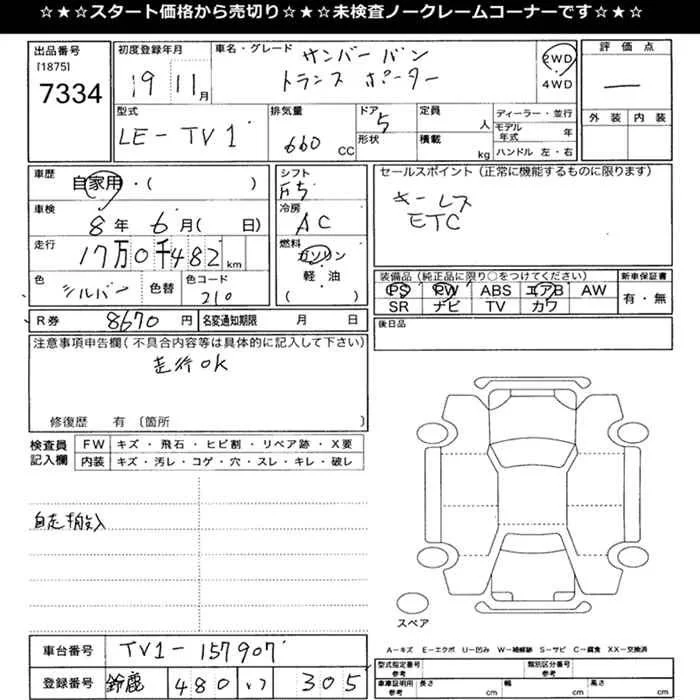 ☆★☆★スタート価格から売切り☆★☆★未検査ノークレームコーナーです☆★☆★
出品番号
[1875]
7334
初度登録年月
19 11月
車名・グレード
サンバーバン
トランスポーター
2WD
4WD
評価点
―
外装 内装
型式
LE-TV1
排気量
660 CC
ドア 5
形状
定員 人
積載 kg
ディーラー・並行
モデル年式 年
ハンドル 左・右
車歴
自家用・( )
車検
8年 6月( 日)
走行
17万0千482 km
色
シルバー
色替
色コード
210
シフト
F5
冷房
AC
燃料
ガソリン
軽・油
( )
セールスポイント(正常に機能するものに限ります)
キーレス
ETC
装備品(純正品に限り○をつけてください)
PS PW ABS エアB AW
SR ナビ TV カワ
新車保証書
有・無
R券 8670 円 名変通知期限 月 日
後日品
注意事項申告欄(不具合内容等は具体的に記入して下さい)
走行OK
修復歴 有 〔箇所
検査員
記入欄
FW キズ・飛石・ヒビ割・リペア跡・X要
内装 キズ・汚レ・コゲ・穴・スレ・キレ・破レ
自走搬入
スペア
A-キズ E-エクボ U-凹み W-補修跡 S-サビ C-腐食 XX-交換済
車台番号 TV1-157907
登録番号 鈴鹿 480 い 305
型式指定番号
参考
類別区分番号
参考
車庫証明用
参考
長さ cm 幅 cm 高さ cm